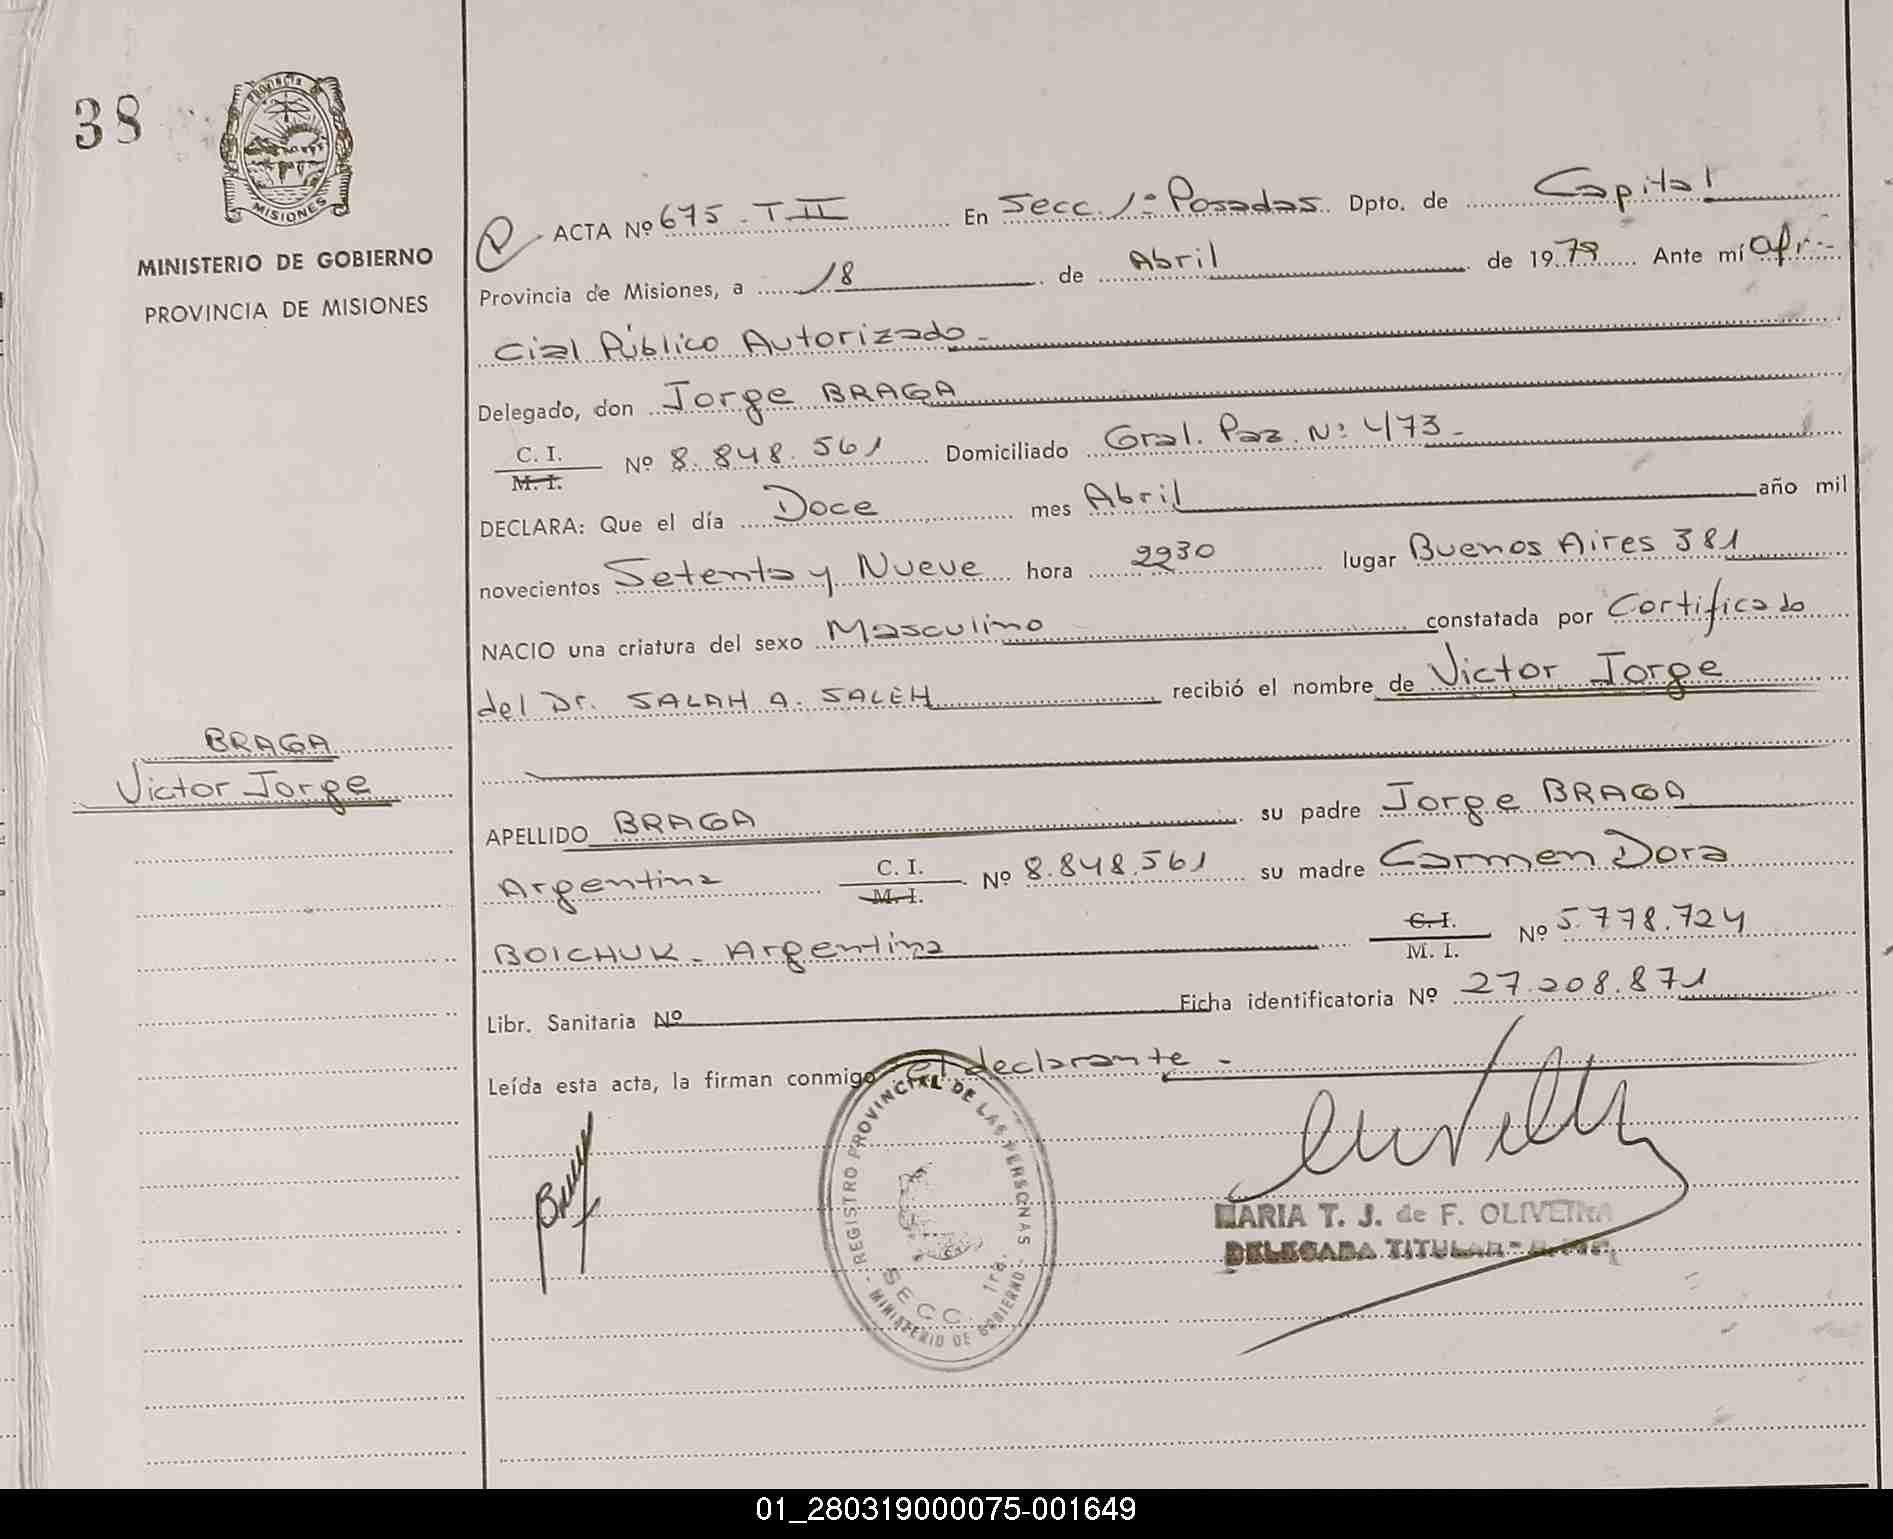 38
PROVINCIA DE
MISIONES
MINISTERIO DE GOBIERNO
PROVINCIA DE MISIONES
ACTA Nº 675 - T II En Secc. 1º Posadas Dpto. de Capital
Provincia de Misiones, a 18 de Abril de 1979 Ante mí Ofi-
cial Público Autorizado -
Delegado, don Jorge BRAGA
C. I.
M. I. Nº 8.848.561 Domiciliado Gral. Paz Nº 473 -
DECLARA: Que el día Doce mes Abril año mil
novecientos Setenta y Nueve hora 2230 lugar Buenos Aires 381
NACIO una criatura del sexo Masculino constatada por Certificado
del Dr. SALAH A. SALEH recibió el nombre de Victor Jorge
BRAGA
Victor Jorge
APELLIDO BRAGA su padre Jorge BRAGA
Argentina C. I.
M. I. Nº 8.848.561 su madre Carmen Dora
BOICHUK - Argentina C. I.
M. I. Nº 5.778.724
Libr. Sanitaria Nº Ficha identificatoria Nº 27.208.871
Leída esta acta, la firman conmigo el declarante -
REGISTRO PROVINCIAL DE LAS PERSONAS
SECC. 1ra.
MINISTERIO DE GOBIERNO
MARIA T. J. de F. OLIVEIRA
DELEGADA TITULAR
01_280319000075-001649